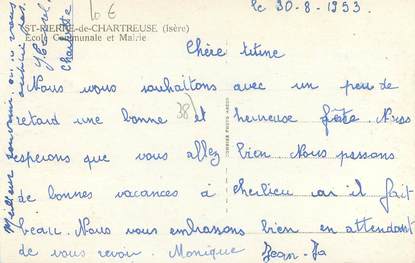 10 €
ST-PIERRE-de-CHARTREUSE (Isère)
Ecole Communale et Mairie
le 30-8-1953
Chère titine
Nous vous souhaitons avec un peu de
retard une bonne et heureuse fête. Nous
esperons que vous allez bien. Nous passons
de bonnes vacances à cherlieu car il fait
beau. Nous vous embrassons bien en attendant
de vous revoir. Monique Jean-
38
Meilleur souvenir
Charlotte